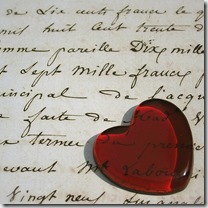 de Six cents francs le q
mil huit cent trente d
omme pareille Dix mille
t Sept mille francs p
incipal de l'acqu
faite de
en termes du
evant Me Labou
Vingt neuf